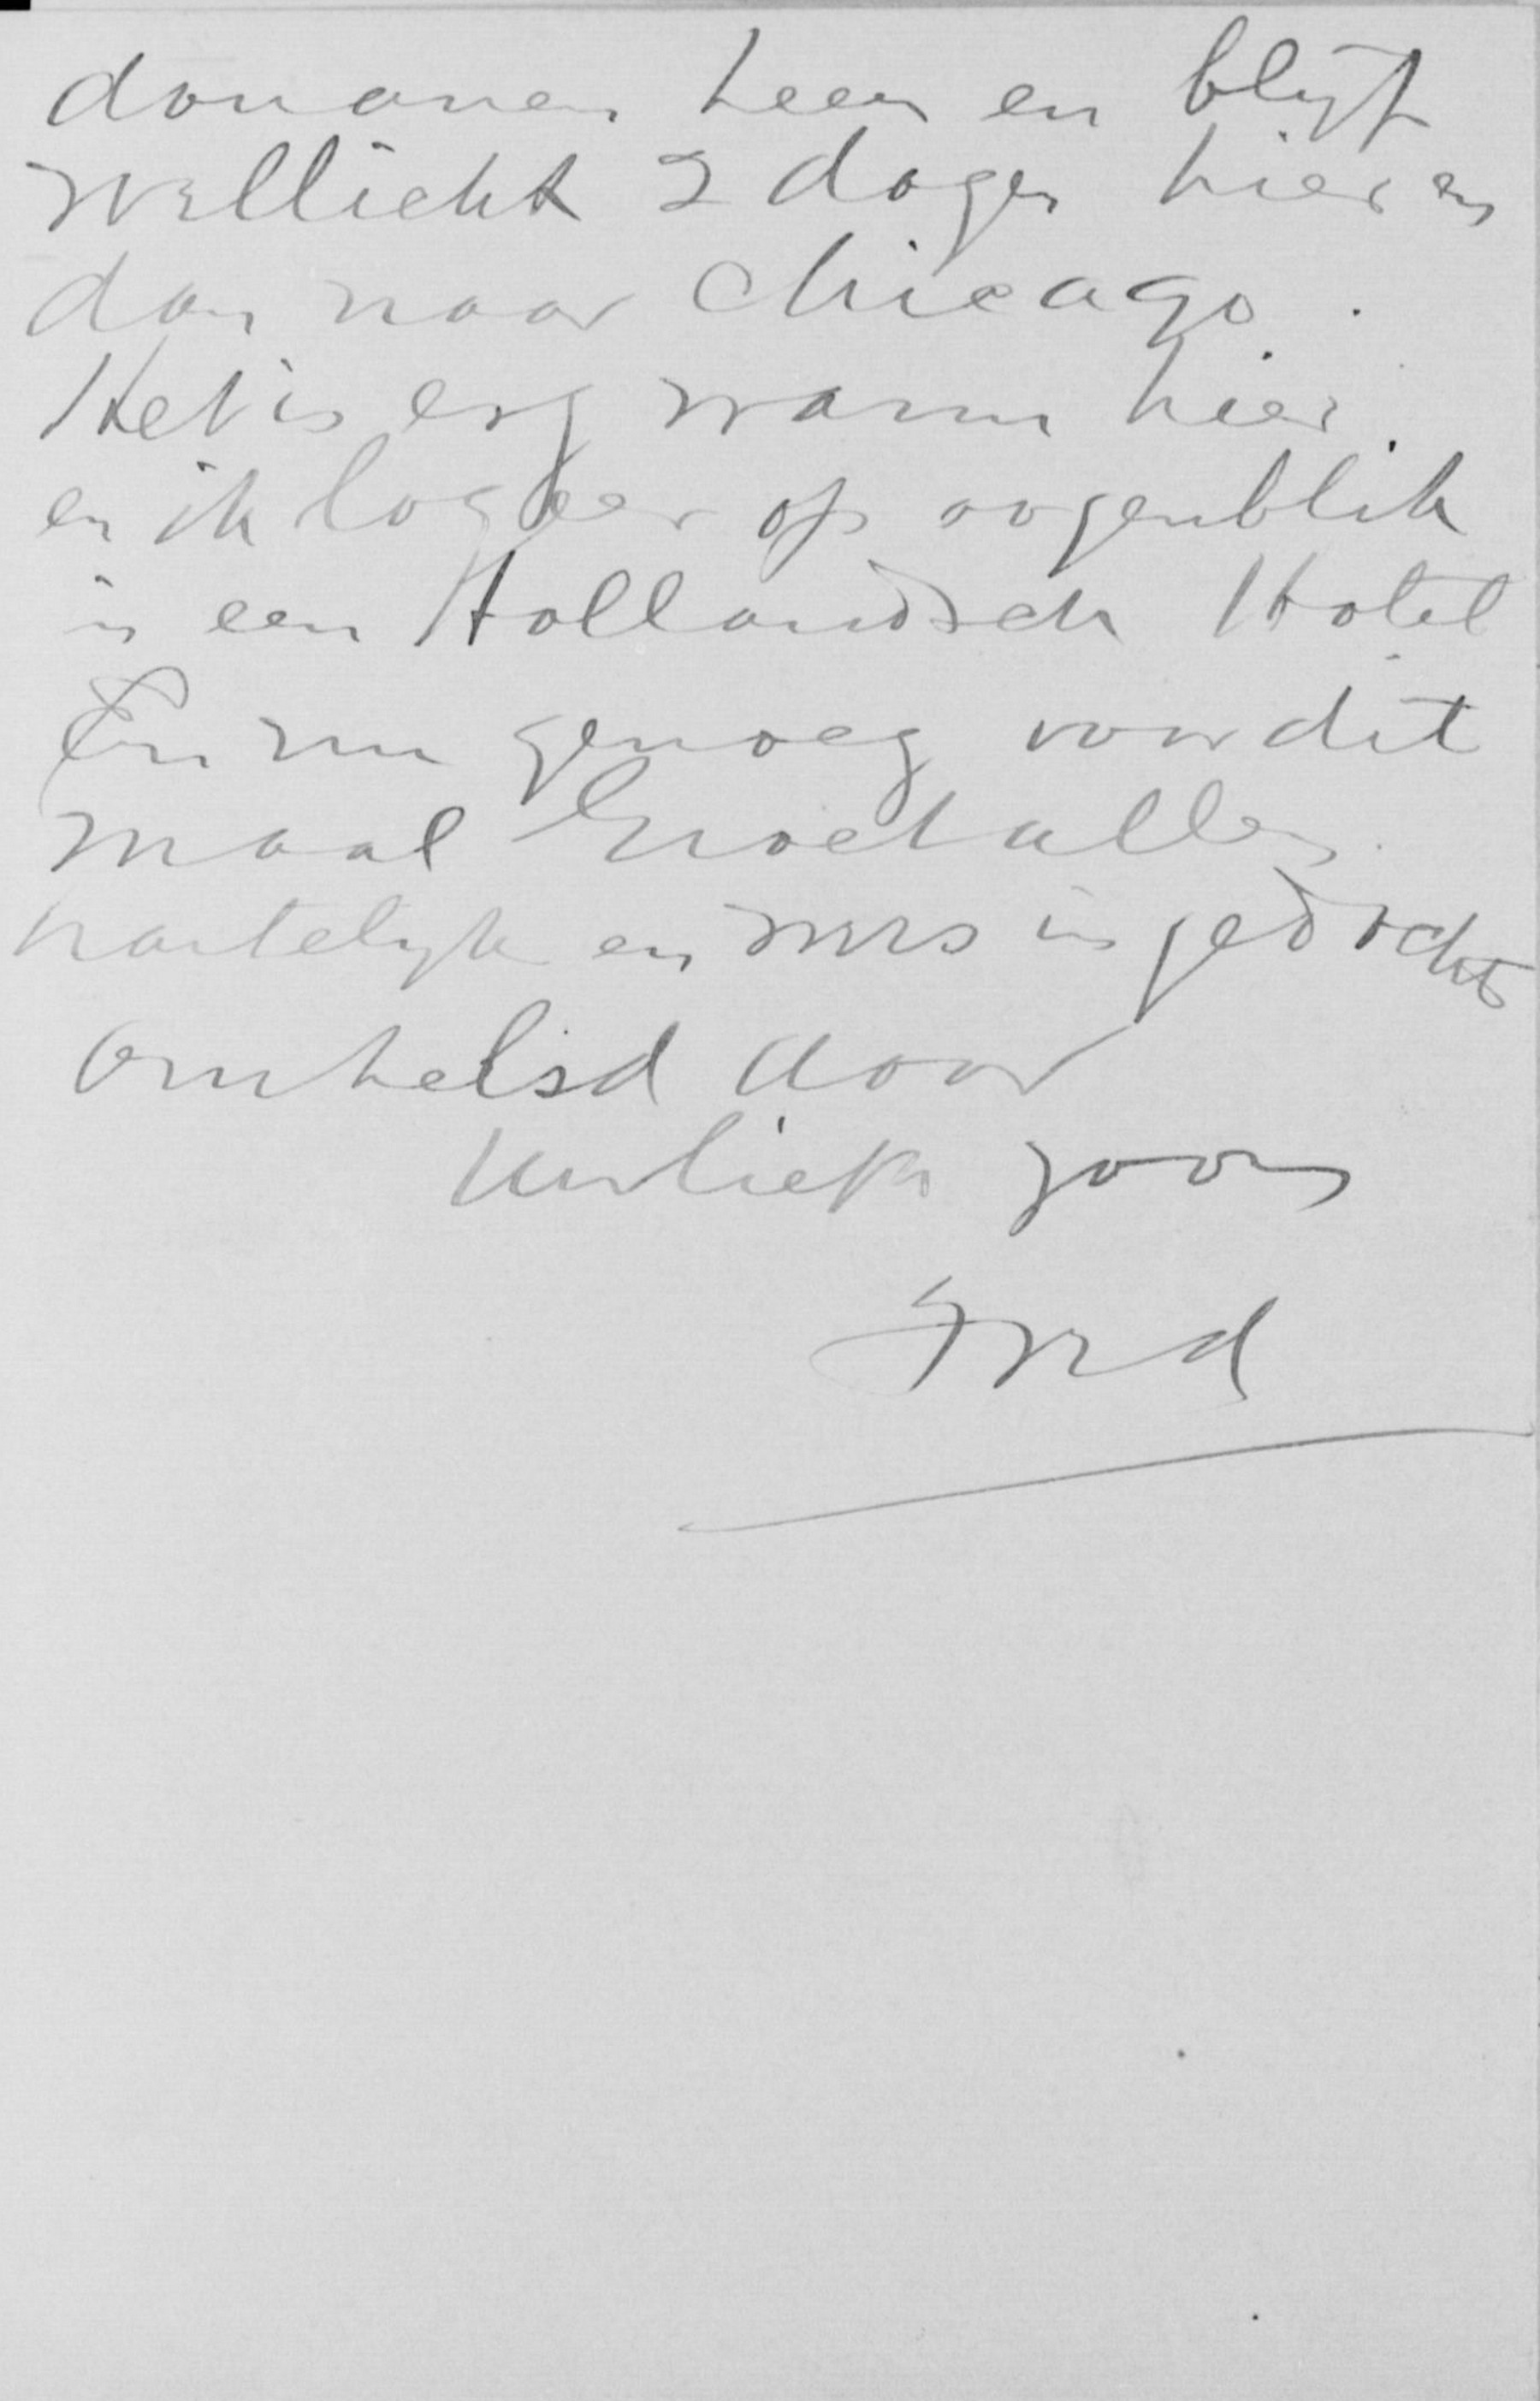 douanen heen en blijf
wellicht 2 dagen hier en
dan naar Chicago.
Het is erg warm hier.
en ik logeer op oogenblik
in een Hollandsch Hotel
En nu genoeg voor dit
maal Groet allen
hartelijk en wees in gedachte
omhelsd door
Uw liefh zoon
Fred